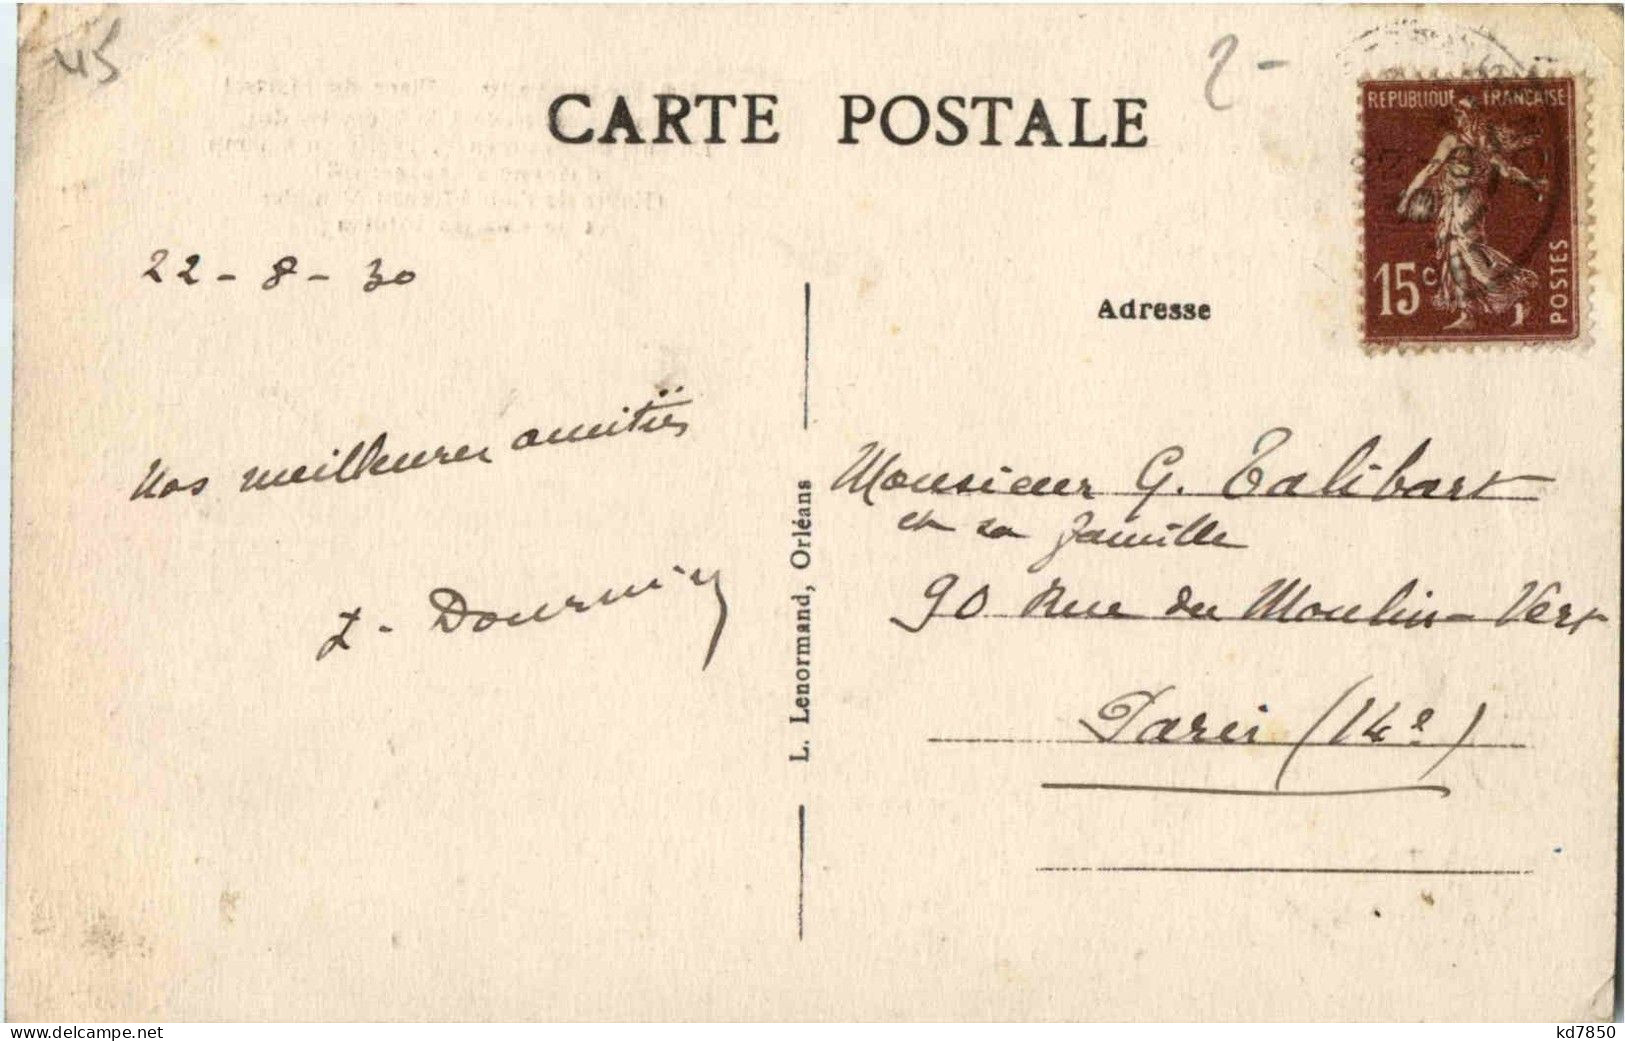 45
2-
CARTE POSTALE
REPUBLIQUE FRANÇAISE
15c
POSTES
22-8-30
Adresse
Nos meilleures amitiés
L. Lenormand, Orléans
Monsieur G. Talibart
et sa famille
90 Rue du Moulin-Vert
Paris (14e)
www.delcampe.net
kd7850